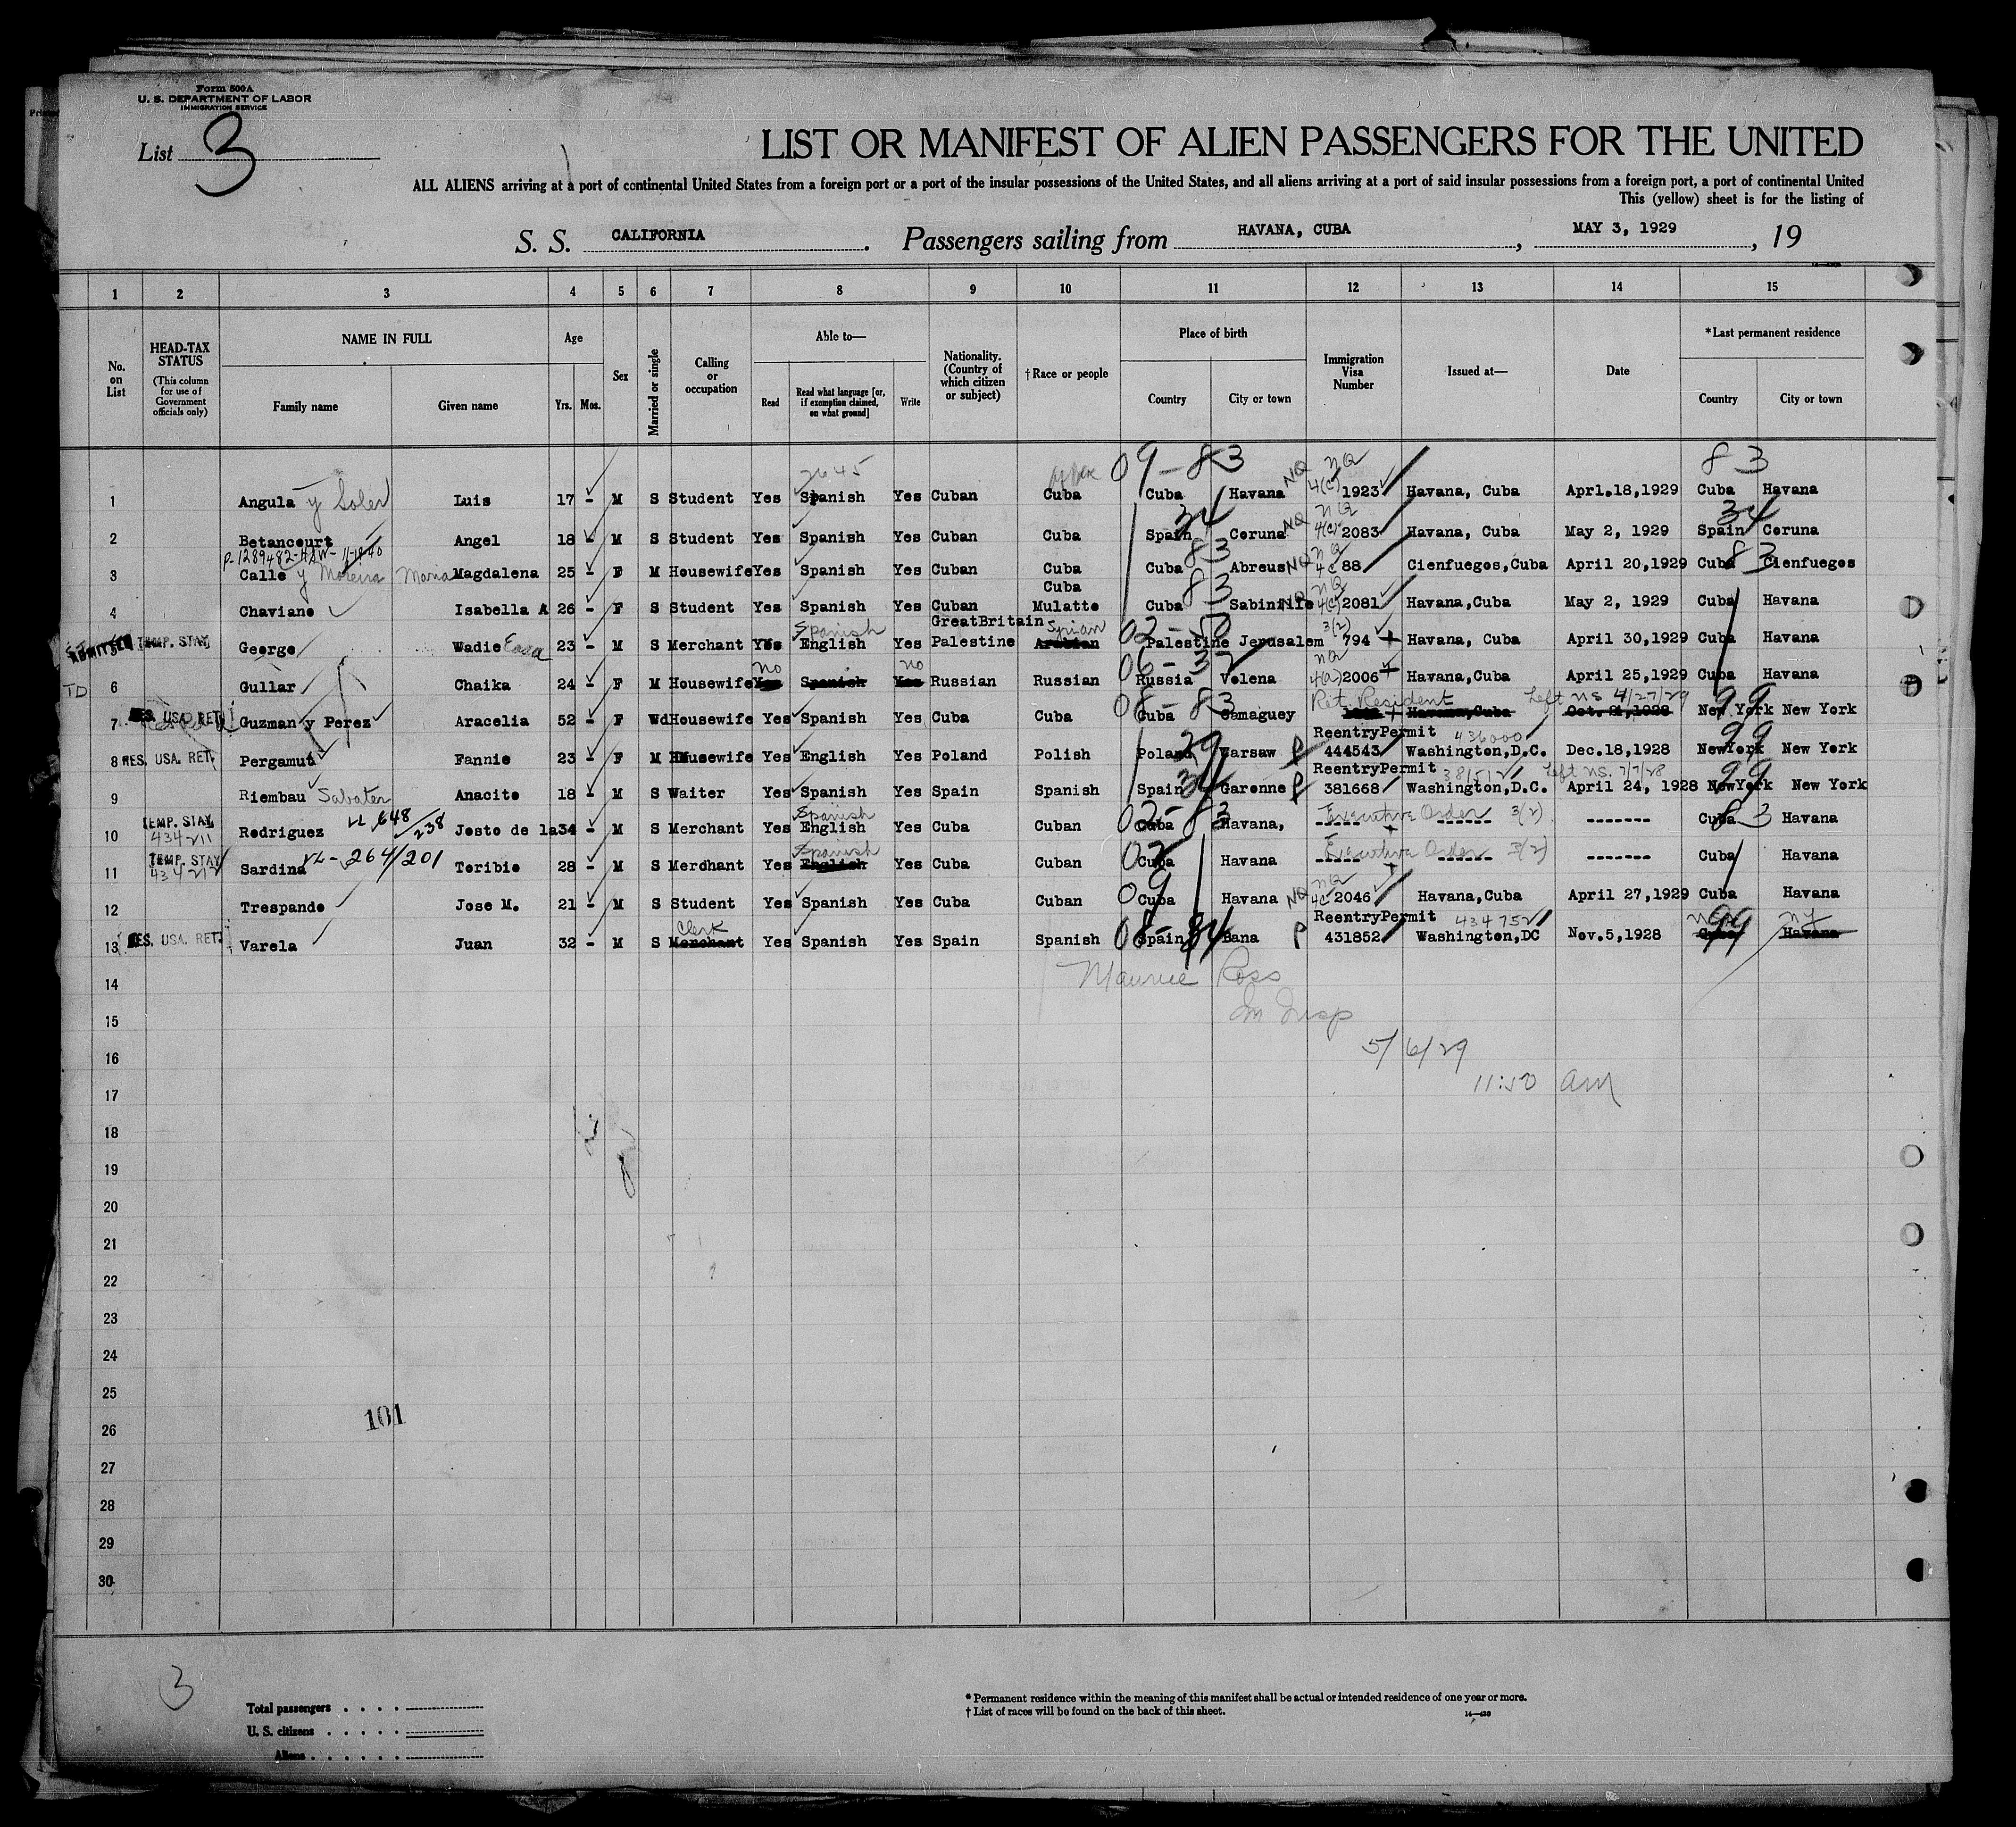 Form 500A
U. S. DEPARTMENT OF LABOR
IMMIGRATION SERVICE
List 3
LIST OR MANIFEST OF ALIEN PASSENGERS FOR THE UNITED
ALL ALIENS arriving at a port of continental United States from a foreign port or a port of the insular possessions of the United States, and all aliens arriving at a port of said insular possessions from a foreign port, a port of continental United
This (yellow) sheet is for the listing of
S. S. CALIFORNIA. Passengers sailing from HAVANA, CUBA, MAY 3, 1929, 19
1 2 3 4 5 6 7 8 9 10 11 12 13 14 15
No. on List
HEAD-TAX STATUS
(This column for use of Government officials only)
NAME IN FULL
Family name Given name
Age
Yrs. Mos.
Sex
Married or single
Calling or occupation
Able to—
Read
Read what language [or, if exemption claimed, on what ground]
Write
Nationality. (Country of which citizen or subject)
†Race or people
Place of birth
Country City or town
Immigration Visa Number
Issued at—
Date
*Last permanent residence
Country City or town
2645 09-83 NQ 83
1 Angula y Soler Luis 17 - M S Student Yes Spanish Yes Cuban Cuba Cuba Havana NQ 4(c) 1923 Havana, Cuba Aprl.18,1929 Cuba Havana
34 NQ 34
2 Betancourt Angel 18 - M S Student Yes Spanish Yes Cuban Cuba Spain Coruna NQ 4(c) 2083 Havana, Cuba May 2, 1929 Spain Coruna
P-1289482- 11-18-40 83 NQ
3 Calle y Moreira Maria Magdalena 25 - F M Housewife Yes Spanish Yes Cuban Cuba Cuba Abreus NQ 4c 88 Cienfuegos,Cuba April 20,1929 Cuba 83 Cienfuegos
Cuba 83 NQ
4 Chaviano Isabella A 26 - F S Student Yes Spanish Yes Cuban Mulatto Cuba Sabinilla NQ 4(c) 2081 Havana,Cuba May 2, 1929 Cuba Havana
Spanish GreatBritain Syrian 02-50 3(2)
ADMITTED TEMP. STAY George Wadie Easa 23 - M S Merchant Yes English Yes Palestine Arabian Palestine Jerusalem 794 Havana, Cuba April 30,1929 Cuba Havana
no no 06-32 NQ
TD 6 Gullar Chaika 24 - F M Housewife Yes Spanish Yes Russian Russian Russia Volena 4(a) 2006 Havana,Cuba April 25,1929 Cuba Havana
08-83 Ret. Resident Left NS 4/27/29 99
7 RES. USA. RET. Guzman y Perez Aracelia 52 - F Wd Housewife Yes Spanish Yes Cuba Cuba Cuba Camaguey Havana,Cuba Oct. 21,1928 New York New York
29 ReentryPermit 436000 99
8 RES. USA. RET. Pergamut Fannie 23 - F M Housewife Yes English Yes Poland Polish Poland Warsaw P 444543 Washington,D.C. Dec.18,1928 NewYork New York
34 ReentryPermit 381512 Left NS. 7/7/28 99
9 Riembau Sabater Anacito 18 - M S Waiter Yes Spanish Yes Spain Spanish Spain Garonne P 381668 Washington,D.C. April 24, 1928 NewYork New York
TEMP. STAY 434211 648/238 Spanish 02-83 Executive Order 3(2)
10 Rodriguez Josto de la 34 - M S Merchant Yes English Yes Cuba Cuban Cuba Havana, ------- Cuba 83 Havana
TEMP. STAY 434212 264/201 Spanish 02 Executive Order 3(2)
11 Sardina Toribio 28 - M S Merchant Yes English Yes Cuba Cuban Cuba Havana ------- Cuba Havana
09 NQ
12 Trespando Jose M. 21 - M S Student Yes Spanish Yes Cuba Cuban Cuba Havana NQ 4c 2046 Havana,Cuba April 27,1929 Cuba Havana
Clerk 08-34 ReentryPermit 434752 99 NY
13 RES. USA. RET. Varela Juan 32 - M S Merchant Yes Spanish Yes Spain Spanish Spain Bana P 431852 Washington,DC Nov.5,1928 Cuba Havana
14 Maurice Ross
15 Im Insp
16 5/6/29
17 11:50 am
18
19
20
21
22
23
24
25
26 101
27
28
29
30
3
Total passengers
U. S. citizens
Aliens
* Permanent residence within the meaning of this manifest shall be actual or intended residence of one year or more.
† List of races will be found on the back of this sheet.